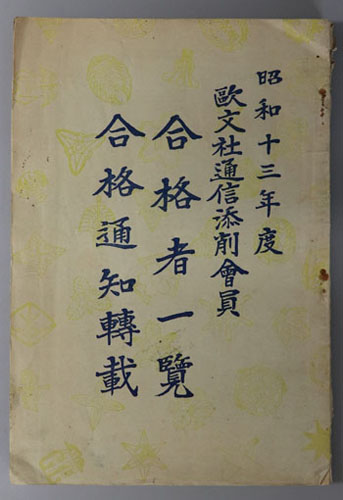 昭和十三年度
歐文社通信添削會員
合格者一覽
合格通知轉載